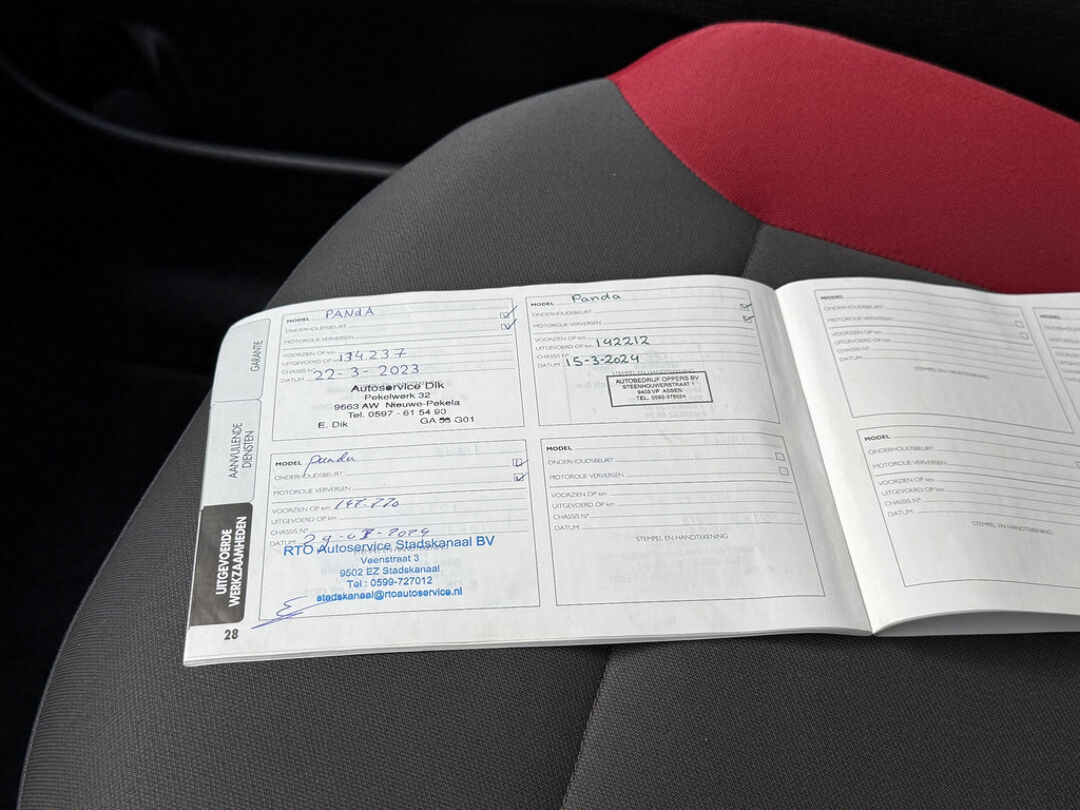 GARANTIE
AANVULLENDE
DIENSTEN
UITGEVOERDE
WERKZAAMHEDEN
28
MODEL PANdA
ONDERHOUDSBEURT
MOTOROLIE VERVERSEN
VOORZIEN OP km
UITGEVOERD OP km 134.237
CHASSIS N°
DATUM 22-3-2023
Autoservice Dik
Pekelwerk 32
9663 AW Nieuwe-Pekela
Tel. 0597 - 61 54 90
E. Dik GA 56 G01
MODEL Panda
ONDERHOUDSBEURT
MOTOROLIE VERVERSEN
VOORZIEN OP km
UITGEVOERD OP km 142212
CHASSIS N°
DATUM 15-3-2024
STEMPEL EN HANDTEKENING
AUTOBEDRIJF OPPERS BV
STEENHOUWERSTRAAT 1
9403 VP ASSEN
TEL: 0592-375024
MODEL panda
ONDERHOUDSBEURT
MOTOROLIE VERVERSEN
VOORZIEN OP km 147.770
UITGEVOERD OP km
CHASSIS N°
DATUM
RTO Autoservice Stadskanaal BV
Veenstraat 3
9502 EZ Stadskanaal
Tel : 0599-727012
stadskanaal@rtoautoservice.nl
MODEL
ONDERHOUDSBEURT
MOTOROLIE VERVERSEN
VOORZIEN OP km
UITGEVOERD OP km
CHASSIS N°
DATUM
STEMPEL EN HANDTEKENING
MODEL
ONDERHOUDSBEURT
MOTOROLIE VERVERSEN
VOORZIEN OP km
UITGEVOERD OP km
CHASSIS N°
DATUM
STEMPEL EN HANDTEKENING
MODEL
ONDERHOUDSBEURT
MOTOROLIE VERVERSEN
VOORZIEN OP km
UITGEVOERD OP km
CHASSIS N°
DATUM
STEMPEL EN HANDTEKENING
MODEL